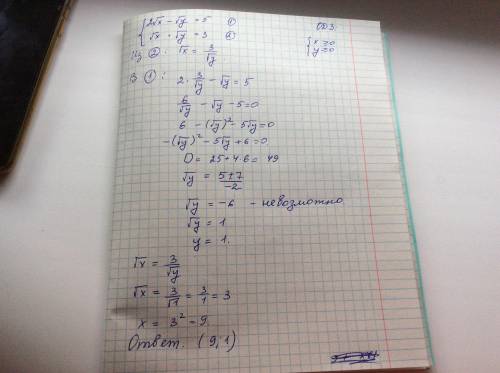 { 2√x - √y = 5 ①
{ √x · √y = 3 ②
ОДЗ:
{ x ≥ 0
{ y ≥ 0
Из ②: √x = 3/√y
В ①: 2 · 3/√y - √y = 5
6/√y - √y - 5 = 0
6 - (√y)² - 5√y = 0
-(√y)² - 5√y + 6 = 0
D = 25 + 4·6 = 49
√y = (5±7)/-2
√y = -6 - невозможно
√y = 1
y = 1.
√x = 3/√y
√x = 3/√1 = 3/1 = 3
x = 3² = 9
Ответ. (9,1)